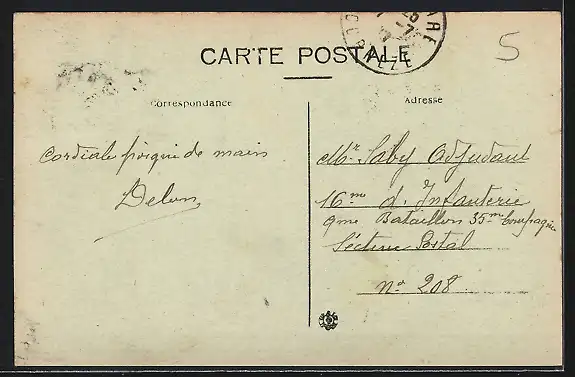 CARTE POSTALE
5
CORRÈZE
Correspondance
Adresse
Cordiale poigné de main
Delon
Mr. Saby Adjudant
16me d'Infanterie
9me Bataillon 35me Compagnie
Sécteur Postal
No 208